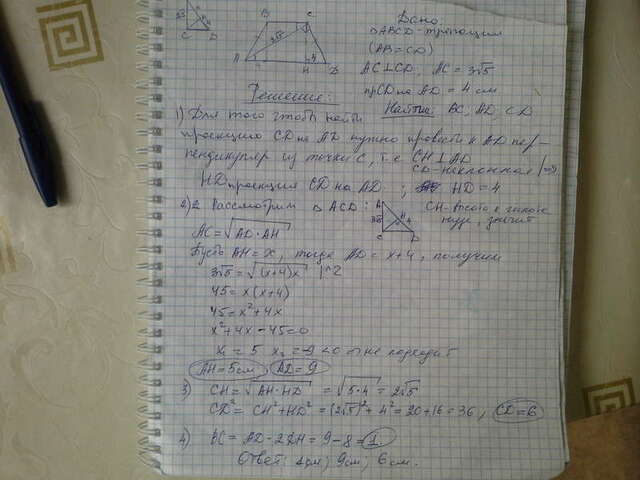 B C
3√5
A H D
Дано:
ABCD-трапеция
(AB=CD)
AC⊥CD, AC = 3√5
пр CD на AD = 4 см
Найти: BC, AD, CD
Решение:
1) Для того чтобы найти
проекцию CD на AD нужно провести к AD пер-
пендикуляр из точки C, т.е. CH⊥AD
CD-наклонная | =>
HD проекция CD на AD ; HD = 4
2) Рассмотрим △ ACD: CH-высота к гипоте-
AC = √AD·AH нузе, значит
Пусть AH = x, тогда AD = x+4, получим
3√5 = √(x+4)x |^2
45 = x(x+4)
45 = x²+4x
x²+4x-45=0
x₁ = 5 x₂ = -9 <0 не подходит
AH=5см, AD=9
3) CH = √AH·HD = √5·4 = 2√5
CD² = CH²+HD² = (2√5)²+4² = 20+16 = 36, CD=6
4) BC = AD-2DH = 9-8 = 1
Ответ: 1см; 9см; 6см.